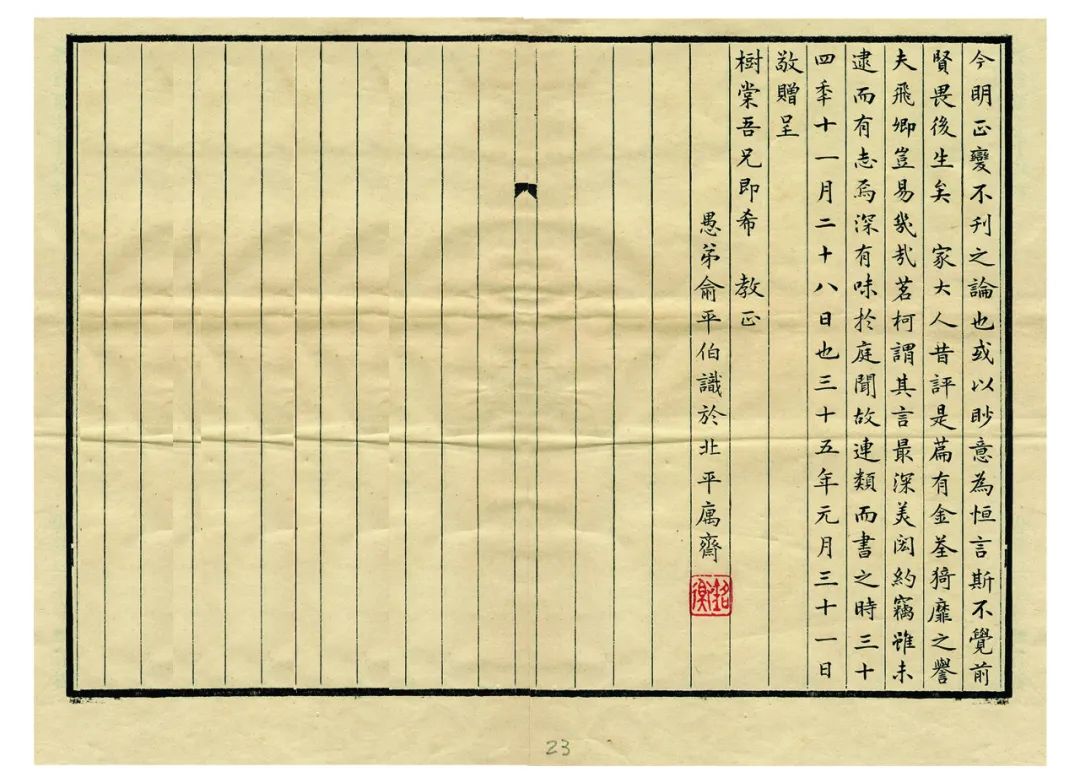 今明正變不刊之論也或以眇意為恒言斯不覺前
賢畏後生矣　家大人昔評是篇有金荃猗靡之譽
夫飛卿豈易哉茗柯謂其言最深美閎約竊雖未
逮而有志焉深有味於庭聞故連類而書之時三十
四年十一月二十八日也三十五年元月三十一日
敬贈呈
樹棠吾兄即希　教正
愚弟俞平伯識於北平寓齋
衡
23